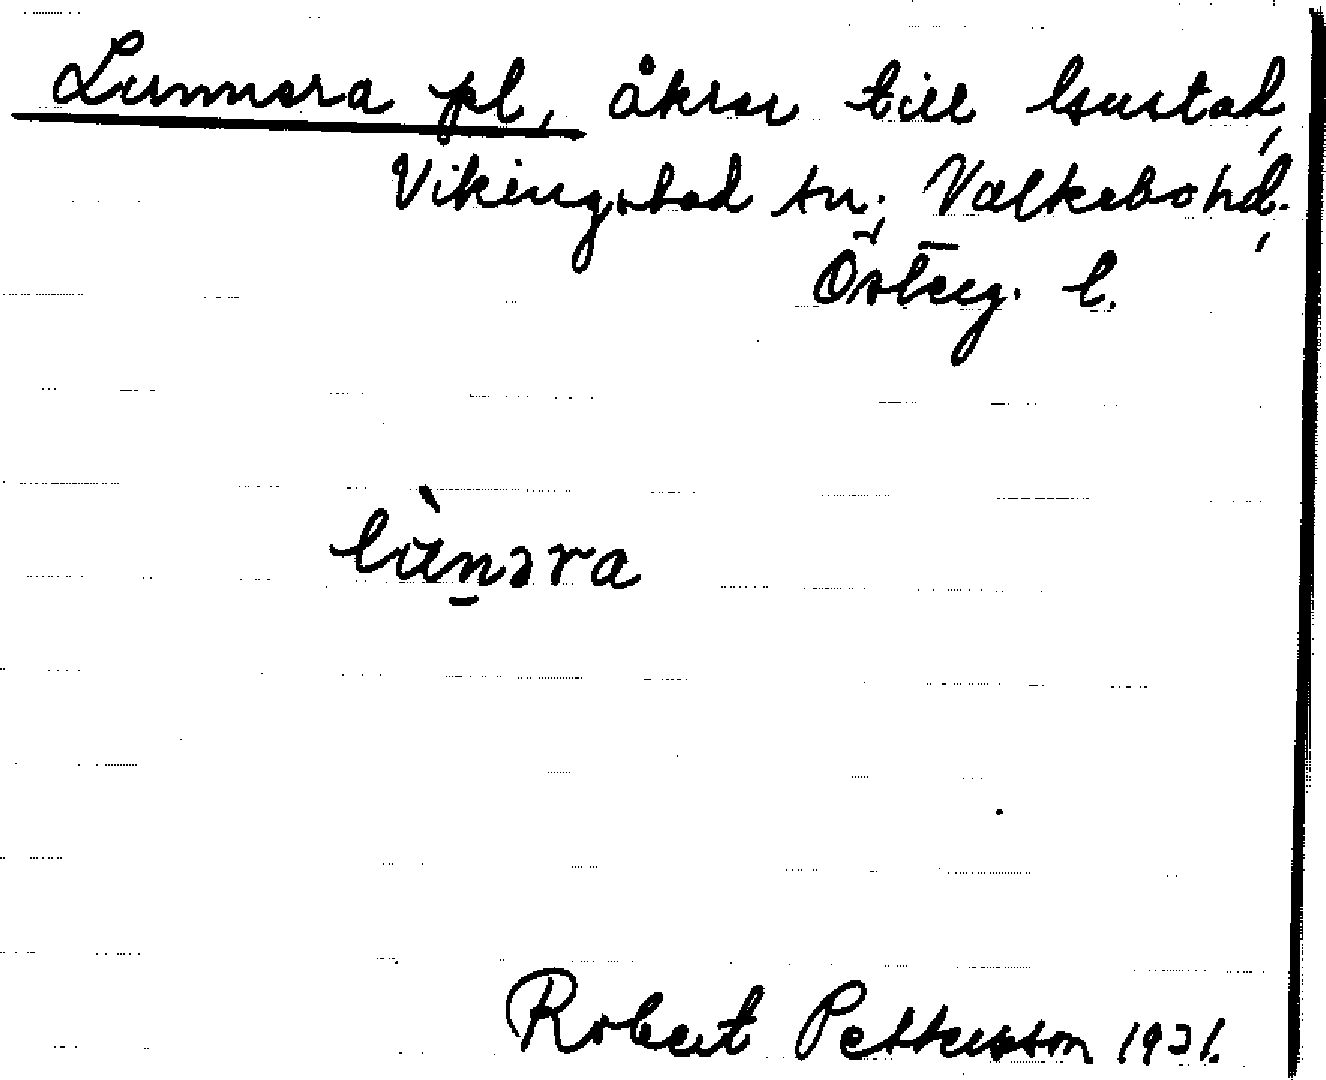 Lunnara pl, åkrar till Gustad,
Vikingstad sn, Valkebo hd.
Österg. l.
lùnəra
Robert Pettersson 1931.